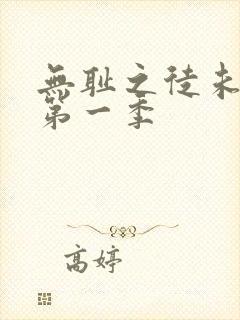 無耻之徒未
第一季
高婷